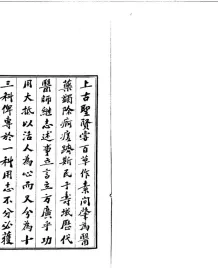 上古聖賢嘗百草作素問肇為醫
藥蠲除痾瘼躋斯民于壽域歷代
醫師繼志述事立言立方廣事功
用大抵以活人為心而又分為十
三科俾專於一種用志不分必獲